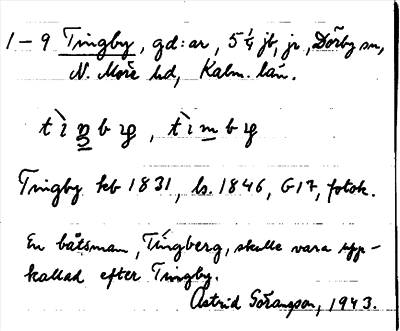 1-9 Tingby, gd:ar, 5 1/4 jb, jr, Dörby sn,
N. Möre hd, Kalm. län.
tìnby, tìmby
Tingby kb 1831, ls. 1846, G17, fotok.
En båtsman, Tingberg, skulle vara upp-
kallad efter Tingby.
Astrid Göransson, 1943.